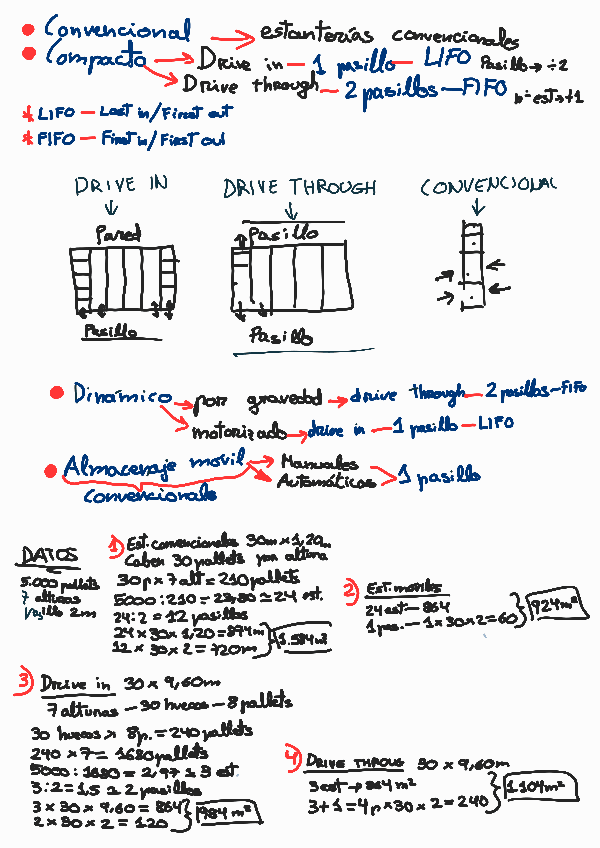 • Convencional → estanterías convencionales
• Compacto → Drive in — 1 pasillo — LIFO Pasillo → ÷2
→ Drive through — 2 pasillos — FIFO nº est → +1
* LIFO — Last in/First out
* FIFO — First in/First out
DRIVE IN DRIVE THROUGH CONVENCIONAL
Pared Pasillo
Pasillo Pasillo
• Dinámico → por gravedad → drive through — 2 pasillos — FIFO
→ motorizado → drive in — 1 pasillo — LIFO
• Almacenaje movil → Manuales
→ Automáticas > 1 pasillo
convencionals
DATOS
5.000 pallets
7 alturas
Pasillo 2m
1) Est. convencionales 30m x 1,20m
Caben 30 pallets por altura
30p x 7 alt = 210 pallets
5000 : 210 = 23,80 ≈ 24 est.
24 : 2 = 12 pasillos
24 x 30 x 1,20 = 894m
12 x 30 x 2 = 720m } 1.584m²
2) Est. moviles
24 est — 864
1 pas. — 1 x 30 x 2 = 60 } 924m²
3) Drive in 30 x 9,60m
7 alturas — 30 huecos — 8 pallets
30 huecos x 8p. = 240 pallets
240 x 7 = 1680 pallets
5000 : 1680 = 2,97 ≈ 3 est.
3 : 2 = 1,5 ≈ 2 pasillos
3 x 30 x 9,60 = 864
2 x 30 x 2 = 120 } 984 m²
4) DRIVE THROUG 30 x 9,60m
3 est → 864 m²
3 + 1 = 4p x 30 x 2 = 240 } 1104m²